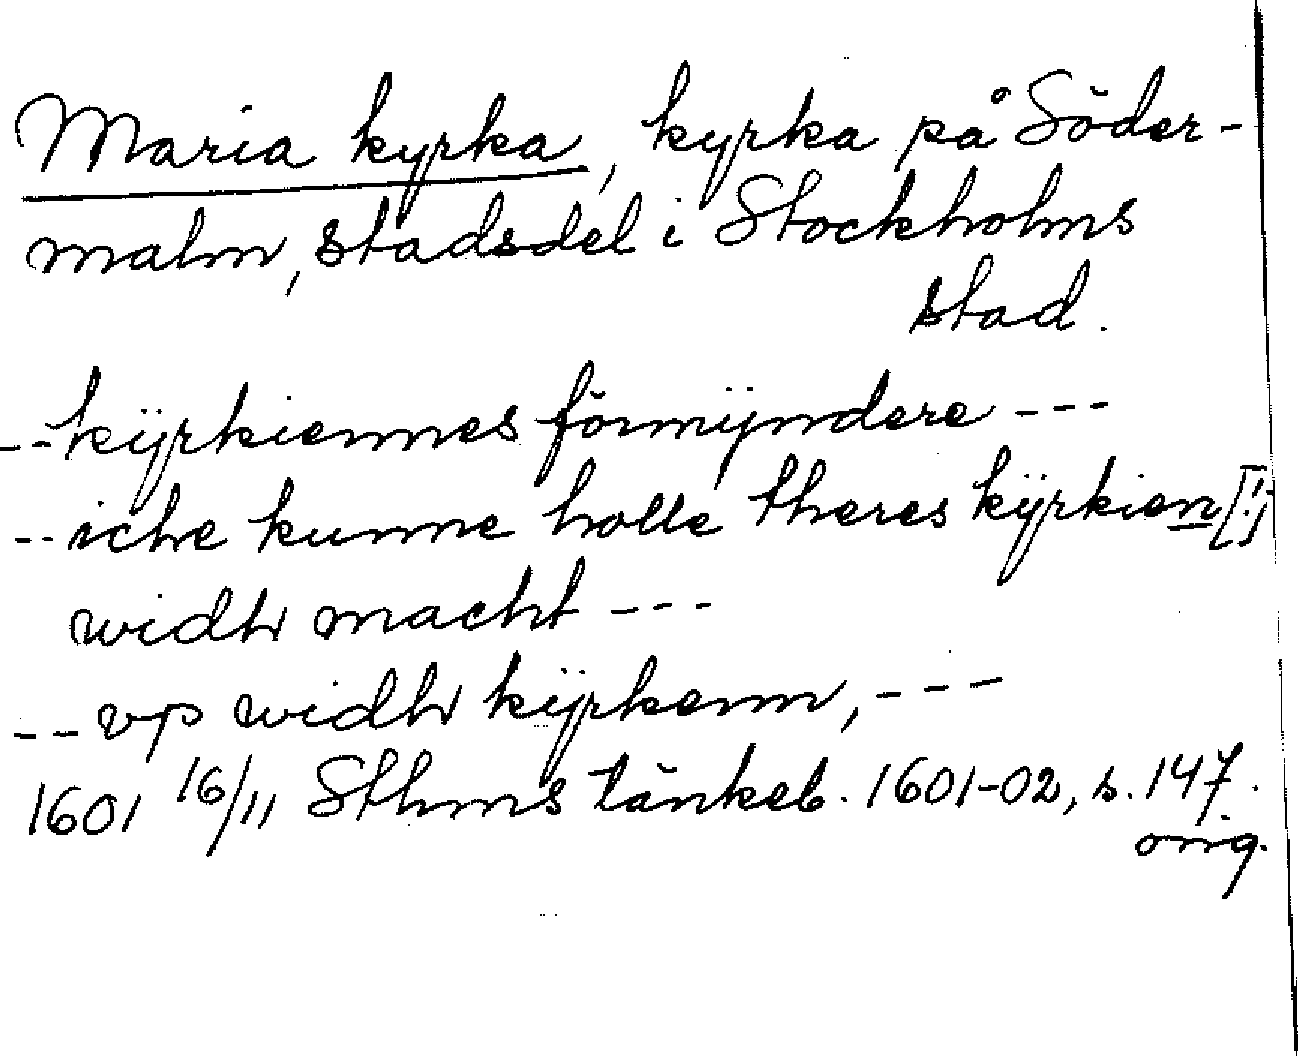 Maria kyrka, kyrka på Söder-
malm, stadsdel i Stockholms
stad.
-- kÿrkiennes förmÿndere ---
-- iche kunne holle theres kÿrkien [!]
widh macht ---
-- vp widh kÿrkenn, ---
1601 16/11 Sthms tänkeb. 1601-02, s. 147.
orig.